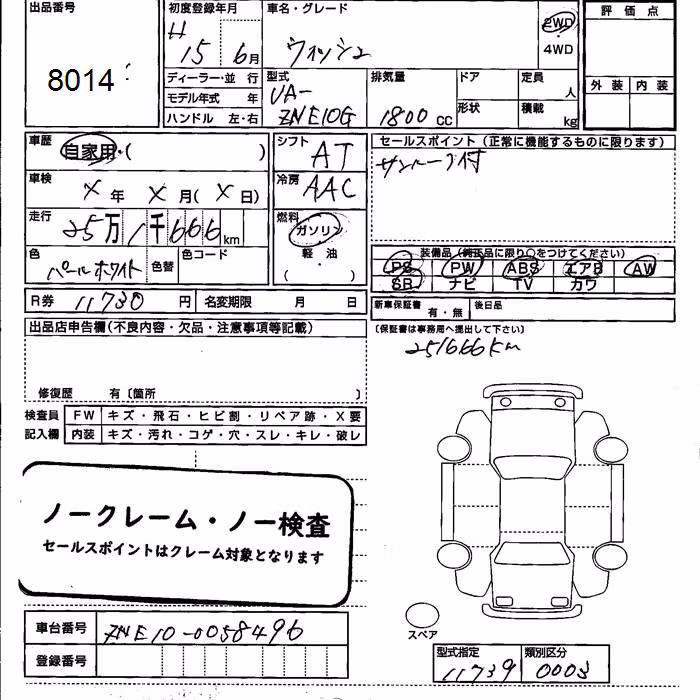 出品番号
8014
初度登録年月
H 15 年 6月
車名・グレード
ウィッシュ
2WD
4WD
評価点
外装 内装
ディーラー・並 行
モデル年式 年
ハンドル 左・右
型式
UA-
ZNE10G
排気量
1800 cc
ドア
形状
定員
人
積載
kg
車歴
自家用・( )
シフト
AT
セールスポイント (正常に機能するものに限ります)
サンルーフ付
車検
X 年 X 月( X 日)
冷房
AAC
走行
25万1千666km
燃料
ガソリン
軽・油
( )
色
パールホワイト
色替
色コード
装備品(純正品に限り○をつけてください)
PS PW ABS エアB AW
SR ナビ TV カワ
R券 11730 円
名変期限 月 日
新車保証書
有・無
後日品
(保証書は事務局へ提出して下さい)
出品店申告欄(不良内容・欠品・注意事項等記載)
251666km
修復歴 有〔箇所 〕
検査員 FW キズ・飛石・ヒビ割・リペア跡・X要
記入欄 内装 キズ・汚れ・コゲ・穴・スレ・キレ・破レ
ノークレーム・ノー検査
セールスポイントはクレーム対象となります
スペア
車台番号 ZNE10-0058496
登録番号
型式指定 類別区分
11739 0003